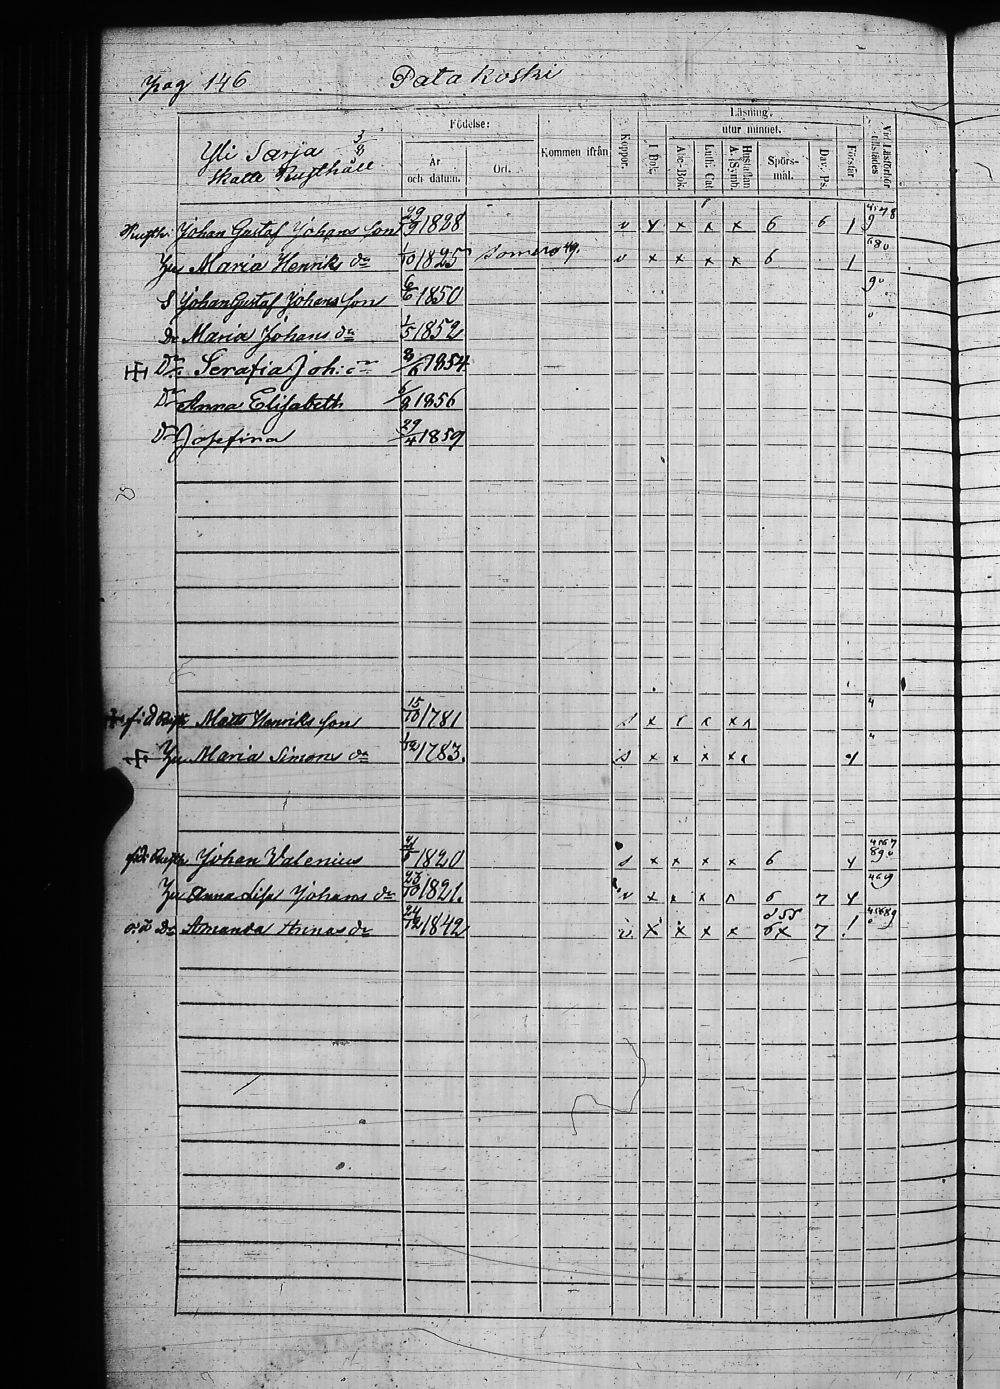 pag 146 Pata koski
Yli Sarja 3/8
Skatte Rusthåll
Födelse:
År och datum.
Ort.
Kommen ifrån
Koppor.
Läsning.
I Bok.
utur minnet.
Abc-Bok.
Luth. Cat
Hustaflan A. Symb.
Spörs-mål.
Dav. Ps.
Förstår
Vid Läsförhör tillstädes
Rusth. Johan Gustaf Johans son 29/9 1828 v x x x x 6 6 1
Hu Maria Henriks dr 1/10 1825 Somero 49. v x x x x 6 1
S Johan Gustaf Johans son 6/6 1850
Dr Maria Johans dr 1/5 1852
Dr Serafia Joh: dr 3/6 1854
Dr Anna Elisabeth 6/2 1856
Dr Josefina 29/4 1859
f.d Rusth Matts Henriks son 15/10 1781 s x
Hu Maria Simons dr 1/12 1783. s x x x x
fd: Rusth Johan Valenius 1820 s x x x x 6
Hu Anna Lisa Johans dr 23/10 1821. v x x x 6 7
o.ä Dr Amanda Annas dr 24/12 1842 v. x x x x 6x 7